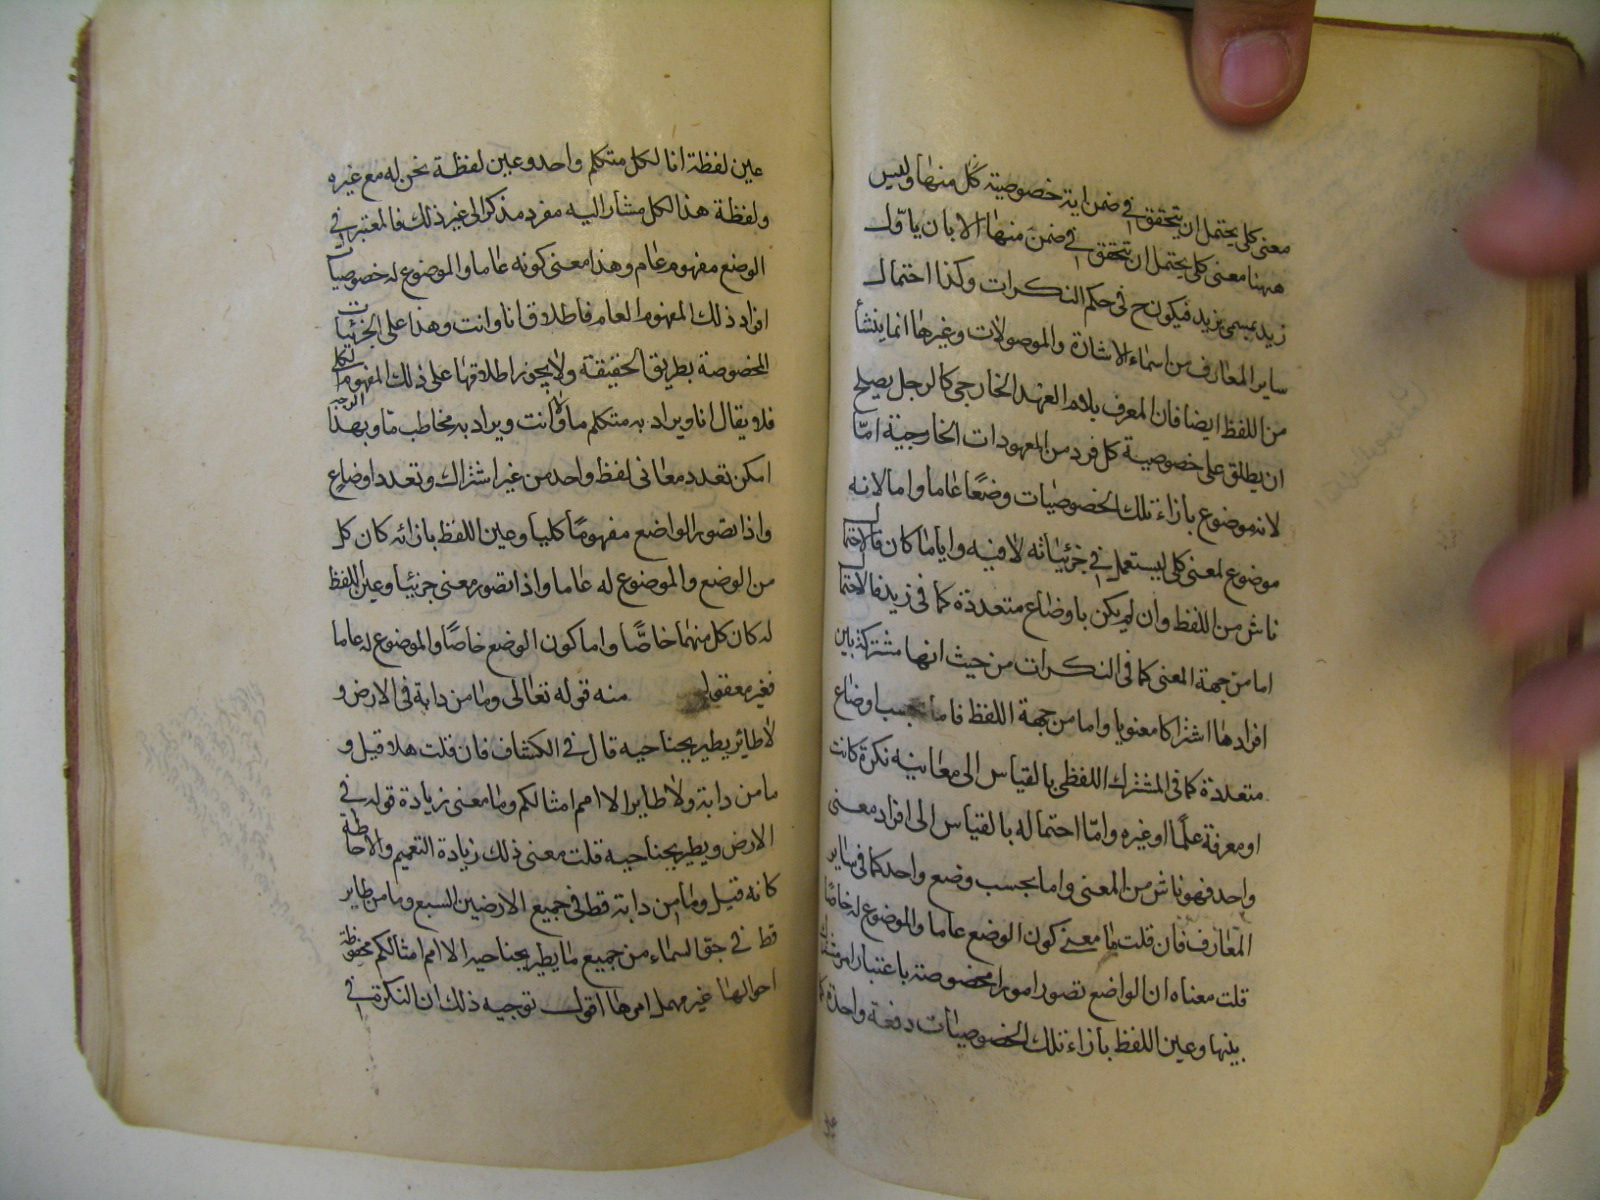 معنى كلى يحتمل ان يتحقق في ضمن اية خصوصية كل منها وليس
ههنا معنى كلى يحتمل ان يتحقق في ضمن منها الا بان ياول
زيد بمسمى بزيد فيكون ح في حكم النكرات وكذا احتمال
ساير المعارف من اسماء الاشارة والموصولات وغيرها انما ينشأ
من اللفظ ايضا فان المعرف بلام العهد الخارجى كالرجل يصلح
ان يطلق على خصوصية كل فرد من المعهودات الخارجية امّا
لانه موضوع بازاء تلك الخصوصيات وضعًا عاما واما لانه
موضوع لمعنى كلى ليستعمل في جزئياته لا فيه وايا ما كان فالاحتمال
ناش من اللفظ وان لم يكن باوضاع متعددة كما في زيد فالاحتمال
اما من جهة المعنى كما في النكرات من حيث انها مشتركة بين
افرادها اشتراكا معنويا واما من جهة اللفظ فاما بحسب اوضاع
متعددة كما في المشترك اللفظى بالقياس الى معانيه نكرة كانت
او معرفة علمًا او غيره وامّا احتماله بالقياس الى افراد معنى
واحد فهو ناش من المعنى واما بحسب وضع واحد كما في ساير
المعارف فان قلت ما معنى كون الوضع عاما والموضوع له خاصًا
قلت معناه ان الواضع تصور امورا مخصوصة باعتبار امر مشترك
بينها وعين اللفظ بازاء تلك الخصوصيات دفعة واحدة كما
عين لفظة انا لكل متكلم واحد وعين لفظة نحن له مع غيره
ولفظة هذا لكل مشار اليه مفرد مذكر الى غير ذلك فالمعتبر في
الوضع مفهوم عام وهذا معنى كونه عاما والموضوع له خصوصيات
افراد ذلك المفهوم العام فاطلاق انا وانت وهذا على الجزئيات
المخصوصة بطريق الحقيقة ولا يجوز اطلاقها على ذلك المفهوم الكلى
فلا يقال انا ويراد به متكلم ما ولا انت ويراد به مخاطب ما وبهذا الوجه
امكن تعدد معانى لفظ واحد من غير اشتراك وتعدد اوضاع
واذا تصور الواضع مفهومًا كليا وعين اللفظ بازائه كان كل
من الوضع والموضوع له عاما واذا تصور معنى جزئيا وعين اللفظ
له كان كل منهما خاصًّا واما كون الوضع خاصًا والموضوع له عاما
فغير معقول منه قوله تعالى وما من دابة في الارض و
لا طائر يطير بجناحيه قال في الكشاف فان قلت هلا قيل و
ما من دابة ولا طاير الا امم امثالكم وما معنى زيادة قوله في
الارض ويطير بجناحيه قلت معنى ذلك زيادة التعميم والاحاطة
كانه قيل وما من دابة قط في جميع الارضين السبع وما من طاير
قط في جو السماء من جميع ما يطير بجناحيه الا امم امثالكم محفوظة
احوالها غير مهمل امرها اقول توجيه ذلك ان النكرة في